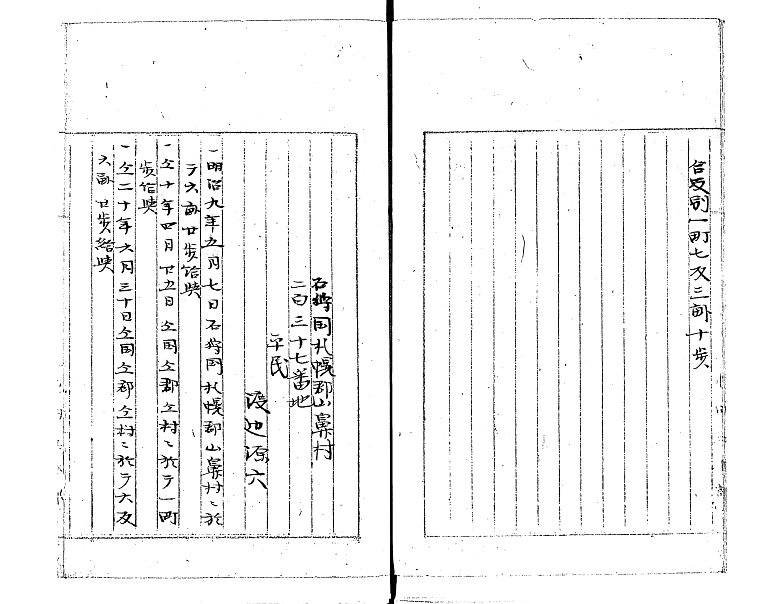 合反別一町七反三畝十歩
石狩国札幌郡山鼻村
二百三十七番地
平民
渡辺源六
一明治九年五月七日石狩国札幌郡山鼻村ニ於
テ六畝廿歩給与
一仝十年四月廿五日仝国仝郡仝村ニ於テ一町
歩給与
一仝二十年六月三十日仝国仝郡仝村ニ於テ六反
六畝廿歩給与